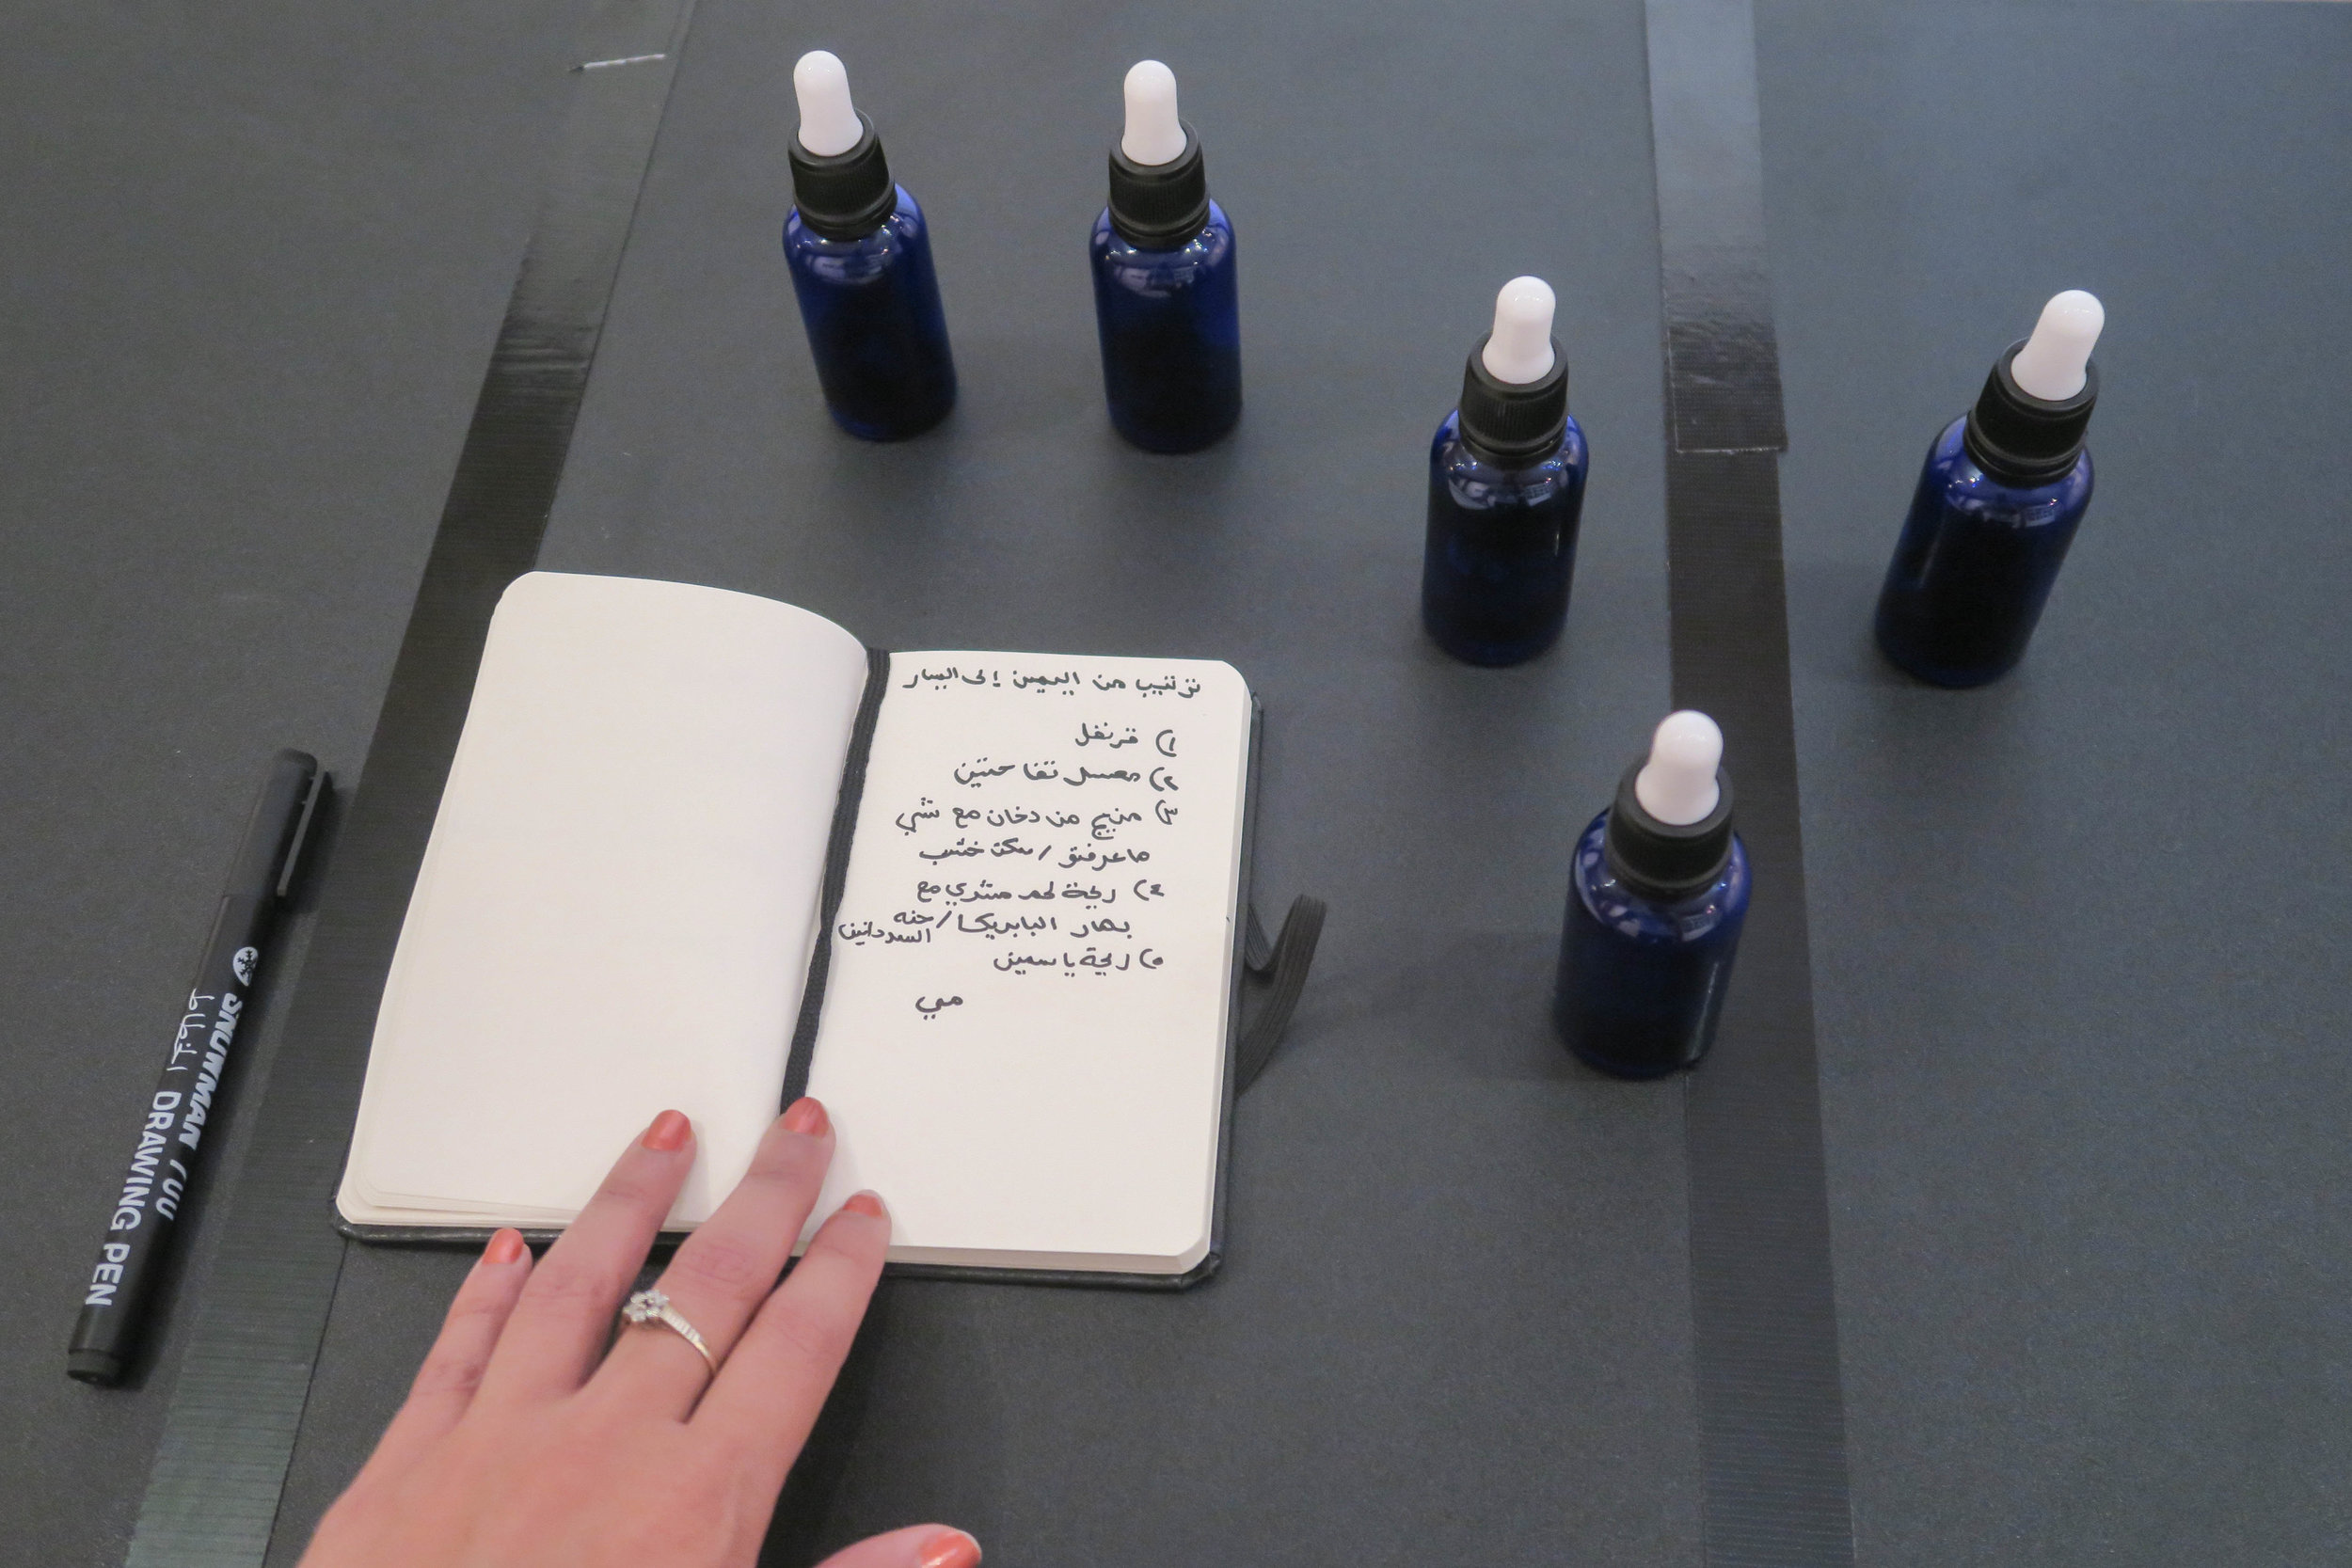 ترتيب من اليمين إلى اليسار
١) قرنفل
٢) معسل تفاحتين
٣) مزيج من دخان مع شي
ماعرفتو / سكت خشب
٤) ريحة لحم مشوي مع
بهار البابريكا / حنه
السودانين
٥) ريحة ياسمين
مي
SNOWMAN
DRAWING PEN